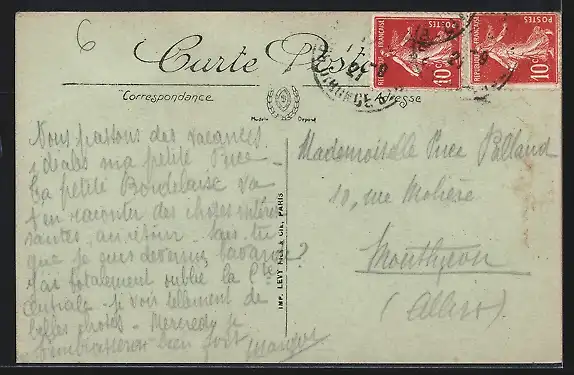 6
Carte Postale
Correspondance
Adresse
Modèle Déposé
POSTES
REPUBLIQUE FRANÇAISE
10c
POSTES
REPUBLIQUE FRANÇAISE
10c
Nous passons des vacances
idéales ma petite Puce -
La petite Bordelaise va
t'en raconter des choses intéres
santes, au retour - Sais-tu
que je suis devenue bavarde?
J'ai totalement oublié la Cte
Centrale - je vois tellement de
belles choses - Mercredi je
t'embrasserai bien fort
Mademoiselle Puce Palland
10, rue Molière
Montluçon
(Allier)
IMP. LEVY FILS & Cie, PARIS